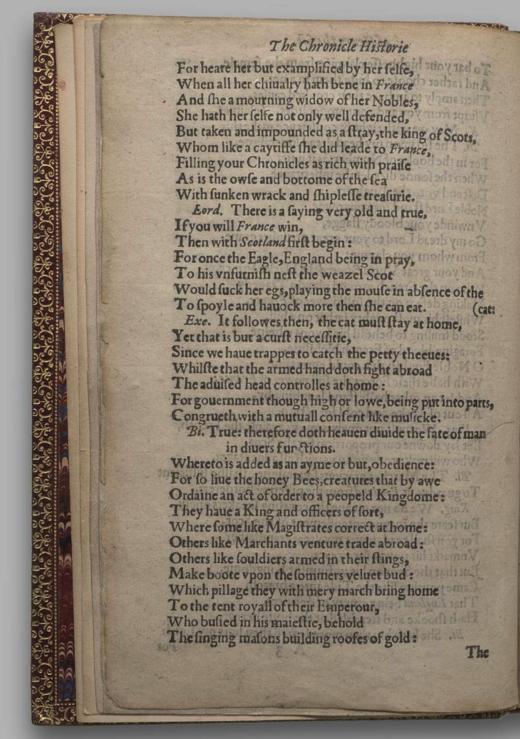 The Chronicle Historie
For heare her but examplified by her selfe,
When all her chiualry hath bene in France
And she a mourning widow of her Nobles,
She hath her selfe not only well defended,
But taken and impounded as a stray, the king of Scots,
Whom like a caytiffe she did leade to France,
Filling your Chronicles as rich with praise
As is the owse and bottome of the sea
With sunken wrack and shiplesse treasurie.
Lord. There is a saying very old and true,
If you will France win,
Then with Scotland first begin:
For once the Eagle, England being in pray,
To his vnfurnish nest the weazel Scot
Would suck her egs, playing the mouse in absence of the
To spoyle and hauock more then she can eat. (cat:
Exe. It followes then, the cat must stay at home,
Yet that is but a curst necessitie,
Since we haue trappes to catch the petty theeues:
Whilste that the armed hand doth fight abroad
The aduised head controlles at home:
For gouernment though high or lowe, being put into parts,
Congrueth with a mutuall consent like musicke.
Bi. True: therefore doth heauen diuide the fate of man
in diuers functions.
Whereto is added as an ayme or but, obedience:
For so liue the honey Bees, creatures that by awe
Ordaine an act of order to a peopeld Kingdome:
They haue a King and officers of sort,
Where some like Magistrates correct at home:
Others like Marchants venture trade abroad:
Others like souldiers armed in their stings,
Make boote vpon the sommers veluet bud:
Which pillage they with mery march bring home
To the tent royall of their Emperour,
Who busied in his maiestie, behold
The singing masons building roofes of gold:
The